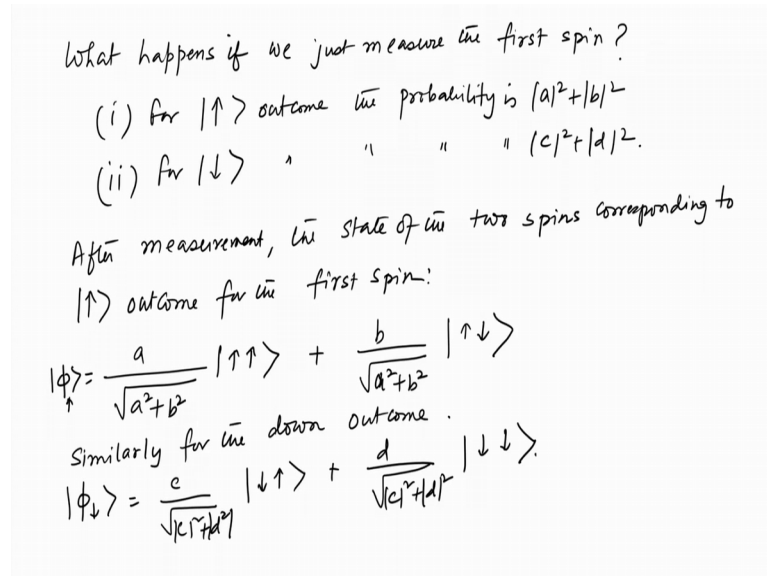 What happens if we just measure the first spin?
(i) for |↑⟩ outcome the probability is |a|²+|b|²
(ii) for |↓⟩ " " " " |c|²+|d|².
After measurement, the state of the two spins corresponding to
|↑⟩ outcome for the first spin:
|ϕ↑⟩ = a/√(a²+b²) |↑↑⟩ + b/√(a²+b²) |↑↓⟩
Similarly for the down outcome.
|ϕ↓⟩ = c/√(|c|²+|d|²) |↓↑⟩ + d/√(|c|²+|d|²) |↓↓⟩.